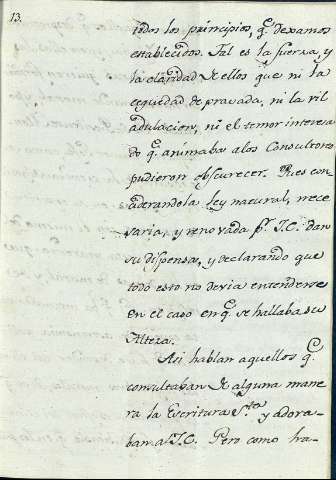 13.
todos los principios, q.e dexamos
establecidos. Tal es la fuerza, y
la claridad de ellos que ni la
ceguedad depravada, ni la vil
adulacion, ni el temor interesa
do q.e animaba a los Consultores
pudieron obscurecer. Pues con
siderandola Ley natural, nece
saria, y renovada p.r J.C. dan
su dispensa, y declarando que
todo esto no devia entenderse
en el caso en q.e se hallaba su
Alteza.
Asi hablan aquellos q.e
consultaban de alguna mane
ra la Escritura S.ta y adora-
ban a J.C. Pero como ha-